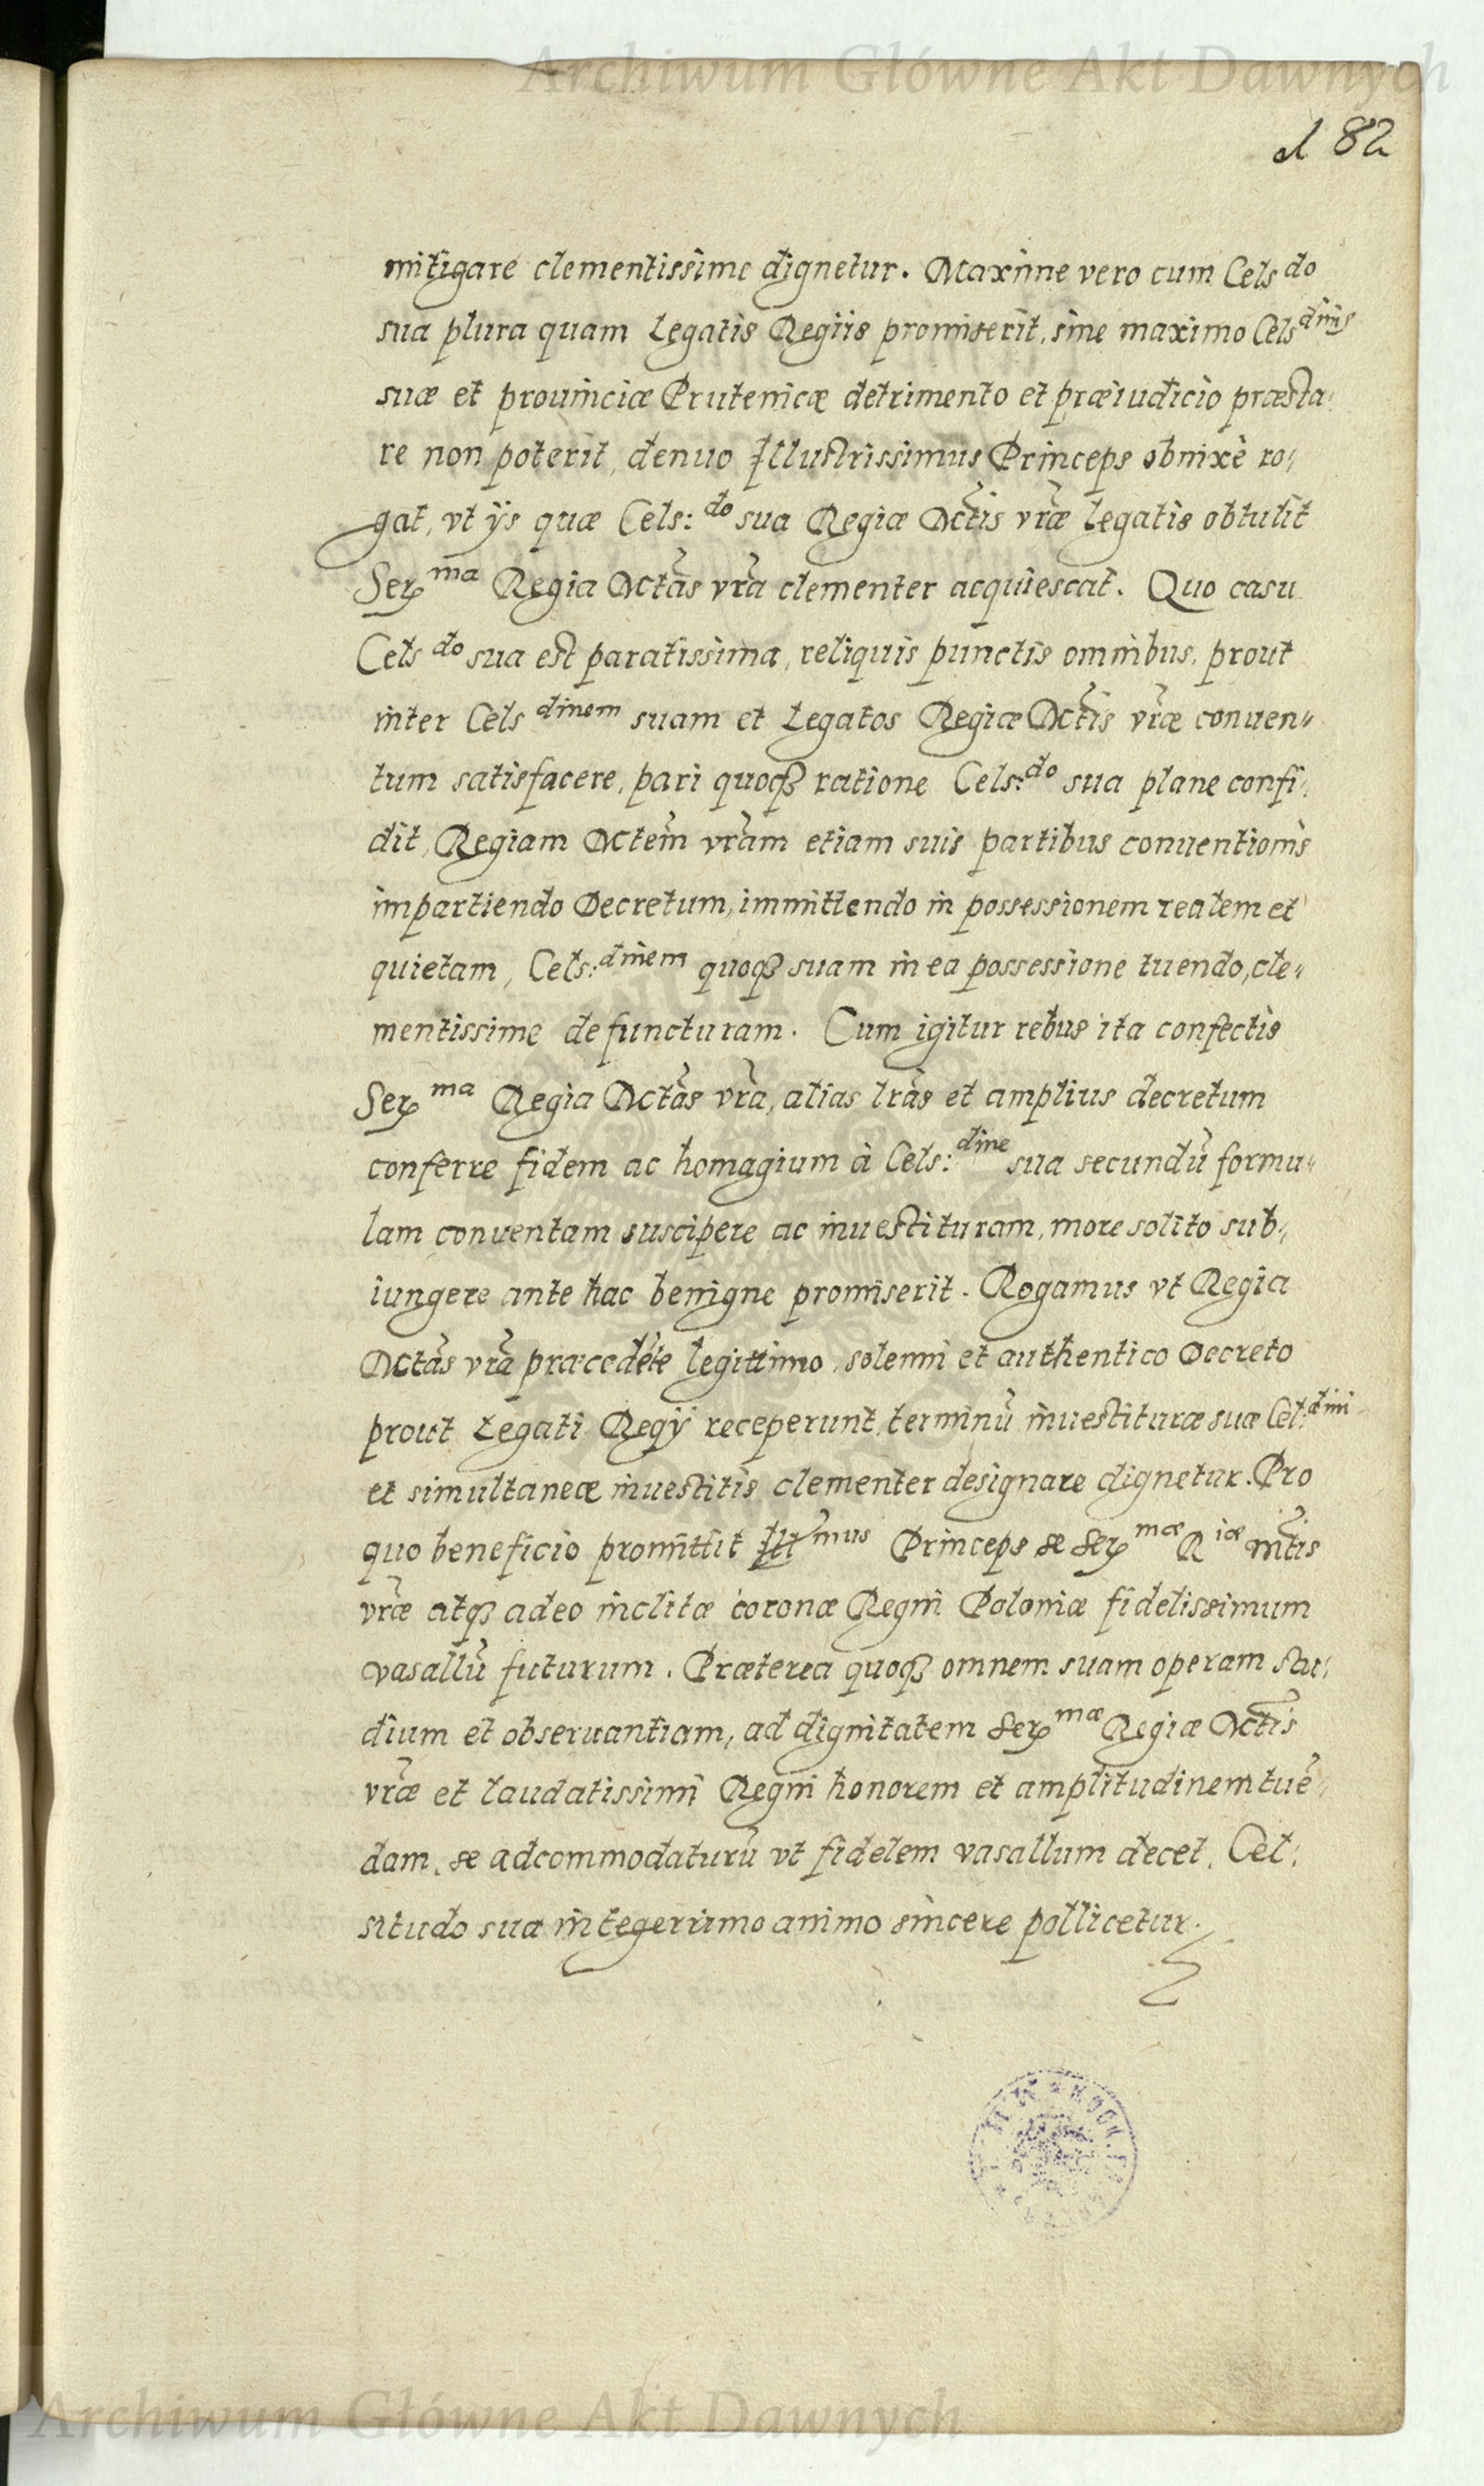 Archiwum Główne Akt Dawnych
182
mitigare clementissime dignetur. Maxime vero cum Cels do
sua plura quam Legatis Regiis promiserit, sine maximo Cels dinis
suæ et prouinciæ Prutenicæ detrimento et præiudicio præsta:
re non poterit, denuo Illustrissimus Princeps obnixè ro:
gat, vt ijs quæ Cels: do sua Regiæ Mtis vræ legatis obtulit
Ser ma Regia Mtas vra clementer acquiescat. Quo casu
Cels do sua est paratissima, reliquis punctis omnibus, prout
inter Cels dinem suam et Legatos Regiæ Mtis vræ conuen"
tum satisfacere, pari quoqȝ ratione Cels: do sua plane confi:
dit, Regiam Mtem vram etiam suis partibus conuentionis
impartiendo Decretum, immittendo in possessionem realem et
quietam, Cels: dinem quoqȝ suam in ea possessione tuendo, cle"
mentissime defuncturam. Cum igitur rebus ita confectis
Ser ma Regia Mtas vra, alias lras et amplius decretum
conferre fidem ac homagium à Cels: dine sua secundũ formu"
lam conventam suscipere ac inuestituram, more solito sub:
iungere ante hac benigne promiserit. Rogamus vt Regia
Mtas vra præcedẽte legittimo, solenni et authentico Decreto
prout Legati Regij receperunt, terminũ inuestituræ suæ Cel: dini
et simultaneæ inuestitis clementer designare dignetur. Pro
quo beneficio promittit Ill mus Princeps se Ser mæ R iæ mtis
vræ atqȝ adeo inclitæ coronæ Regni Poloniæ fidelissimum
vasallũ futurum. Præterea quoqȝ omnem suam operam stu:
dium et obseruantiam, ad dignitatem Ser mæ Regiæ Mtis
vræ et laudatissimi Regni honorem et amplitudinem tuẽ:
dam, se adcommodaturũ vt fidelem vasallum decet, Cel:
situdo sua integerrimo animo sincere pollicetur.
Archiwum Główne Akt Dawnych